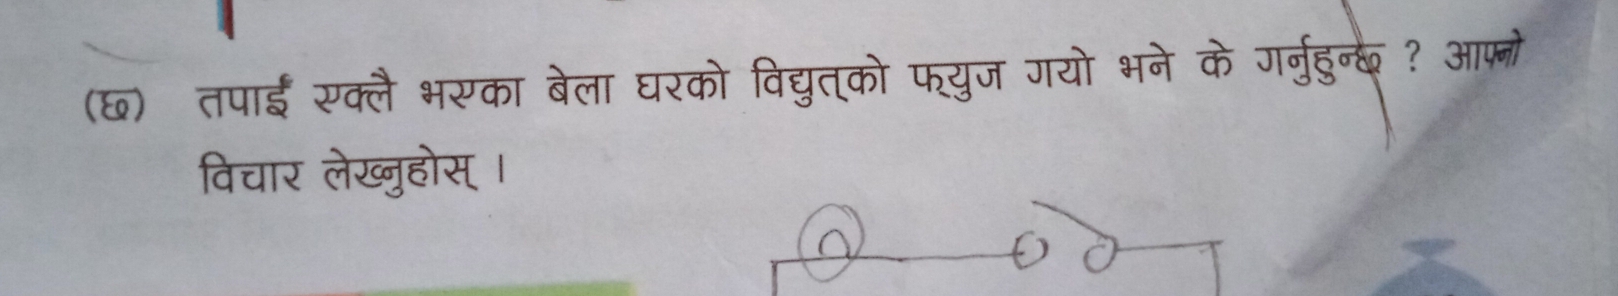 (छ) तपाईं एक्लै भएका बेला घरको विद्युत्को फ्युज गयो भने के गर्नुहुन्छ ? आफ्नो
विचार लेख्नुहोस् ।